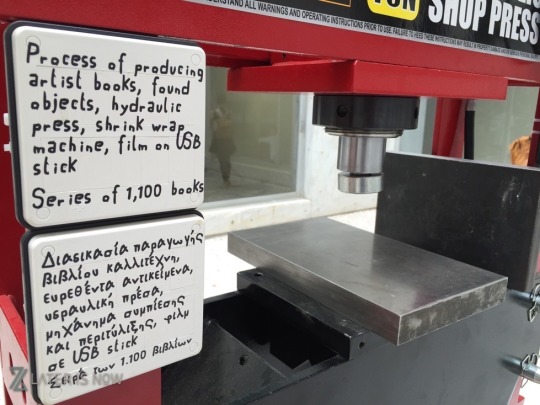 TON
SHOP PRESS
UNDERSTAND ALL WARNINGS AND OPERATING INSTRUCTIONS PRIOR TO USE. FAILURE TO FEED THESE INSTRUCTIONS MAY RESULT IN PROPERTY DAMAGE
Process of producing
artist books, found
objects, hydraulic
press, shrink wrap
machine, film on USB
stick
Series of 1,100 books
Διασικασία παραγωγής
βιβλίου καλλιτέχνη,
ευρεθέντα αντικείμενα,
υδραυλική πρέσα,
μηχάνημα συμπίεσης
και περιτύλιξης, φιλμ
σε USB stick
Σειρά των 1.100 βιβλίων
LATER IS NOW